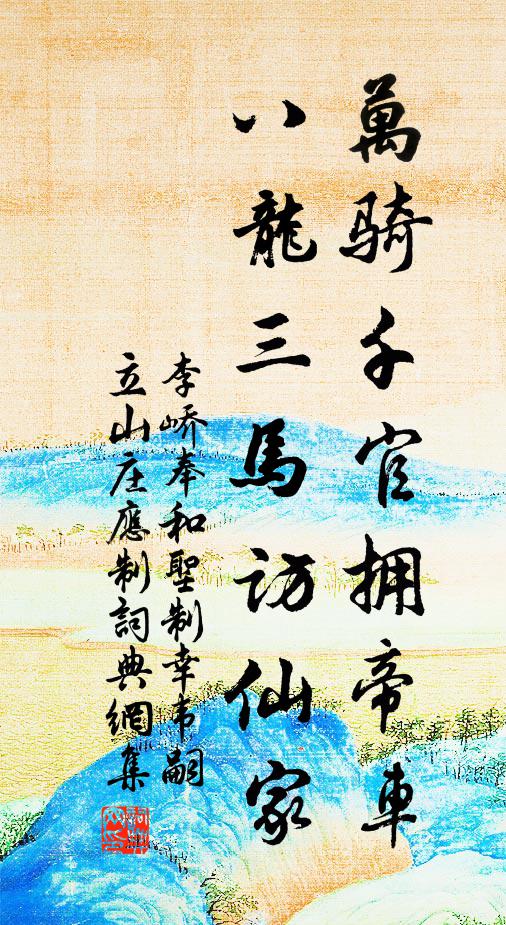 萬騎千官擁帝車
八龍三馬訪仙家
李嶠奉和聖制幸韦嗣
立山庄應制詞典網集